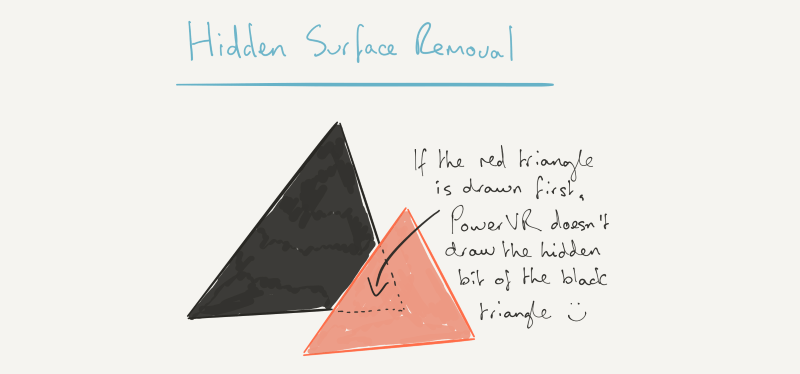 Hidden Surface Removal
If the red triangle
is drawn first,
PowerVR doesn't
draw the hidden
bit of the black
triangle :)